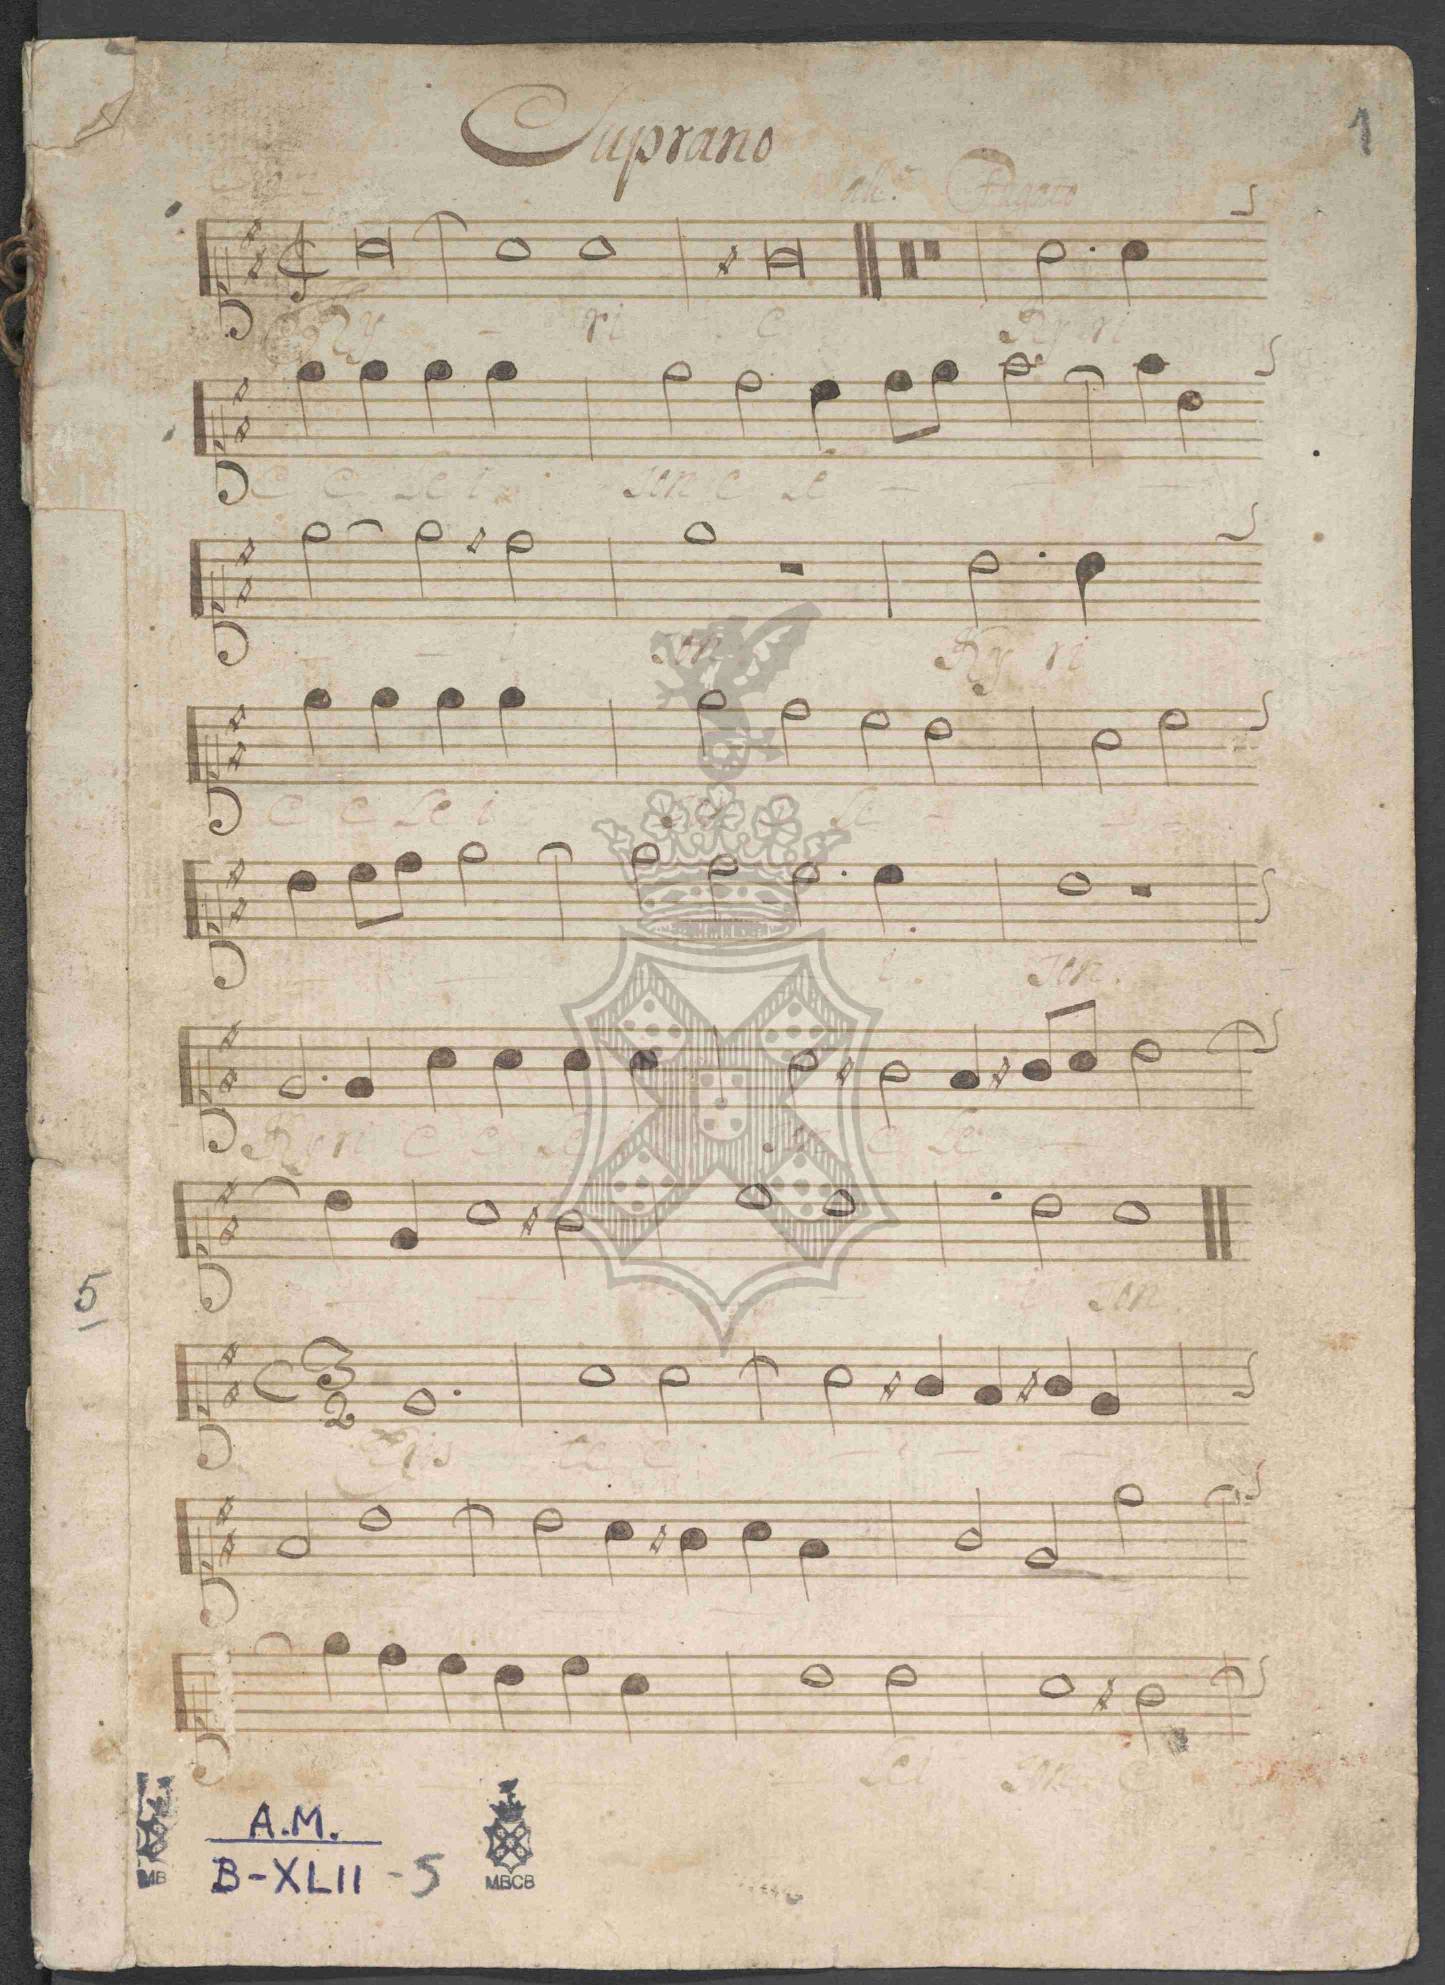 Suprano
1
all.º Fugato
Ky - ri e Ky ri
e e le i son e le - - -
- - i son Ky ri
e e le i son le - - -
- - i son.
Ky ri e e le i son e le -
- - - i son
5
C 3 2
Chris te e - - -
lei son e
A.M.
B-XLII - 5
MB
MBCB